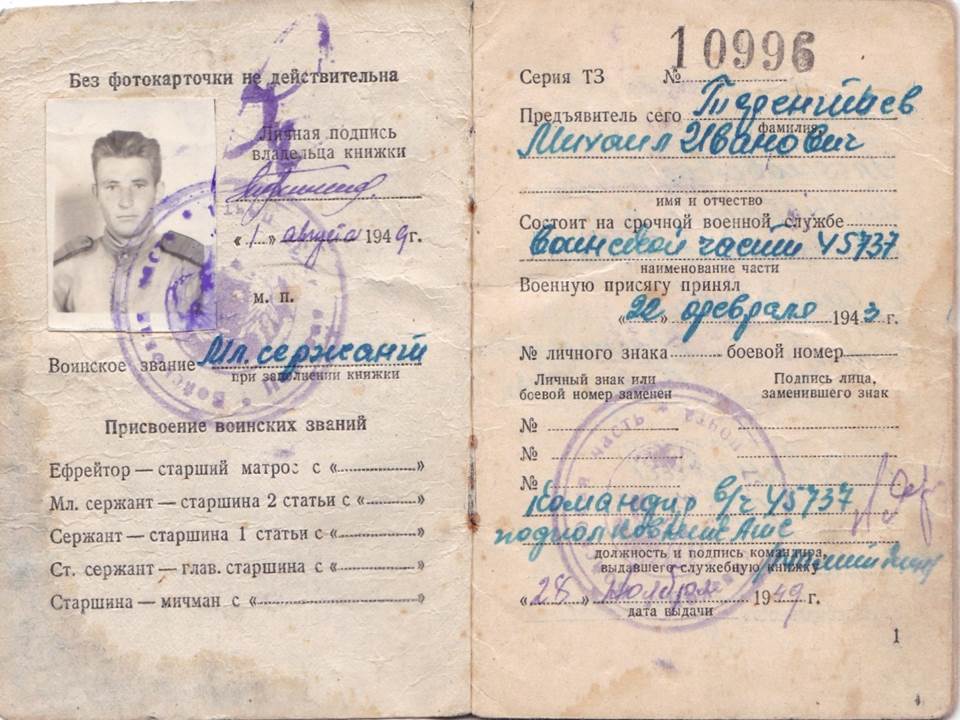 Без фотокарточки не действительна
Личная подпись
владельца книжки
«1» августа 1949г.
м. п.
Воинское звание Мл. сержант
при заполнении книжки
Присвоение воинских званий
Ефрейтор — старший матрос с « »
Мл. сержант — старшина 2 статьи с « »
Сержант — старшина 1 статьи с « »
Ст. сержант — глав. старшина с « »
Старшина — мичман с « »
10996
Серия ТЗ №
Предъявитель сего Терентьев
фамилия,
Михаил Иванович
имя и отчество
Состоит на срочной военной службе
Воинской части 45737
наименование части
Военную присягу принял
«22» февраля 1943 г.
№ личного знака боевой номер
Личный знак или боевой номер заменен
Подпись лица, заменившего знак
№
№
№
Командир в/ч 45737
подполковник
должность и подпись командира,
выдавшего служебную книжку
«28» Ноября 1949 г.
дата выдачи
1